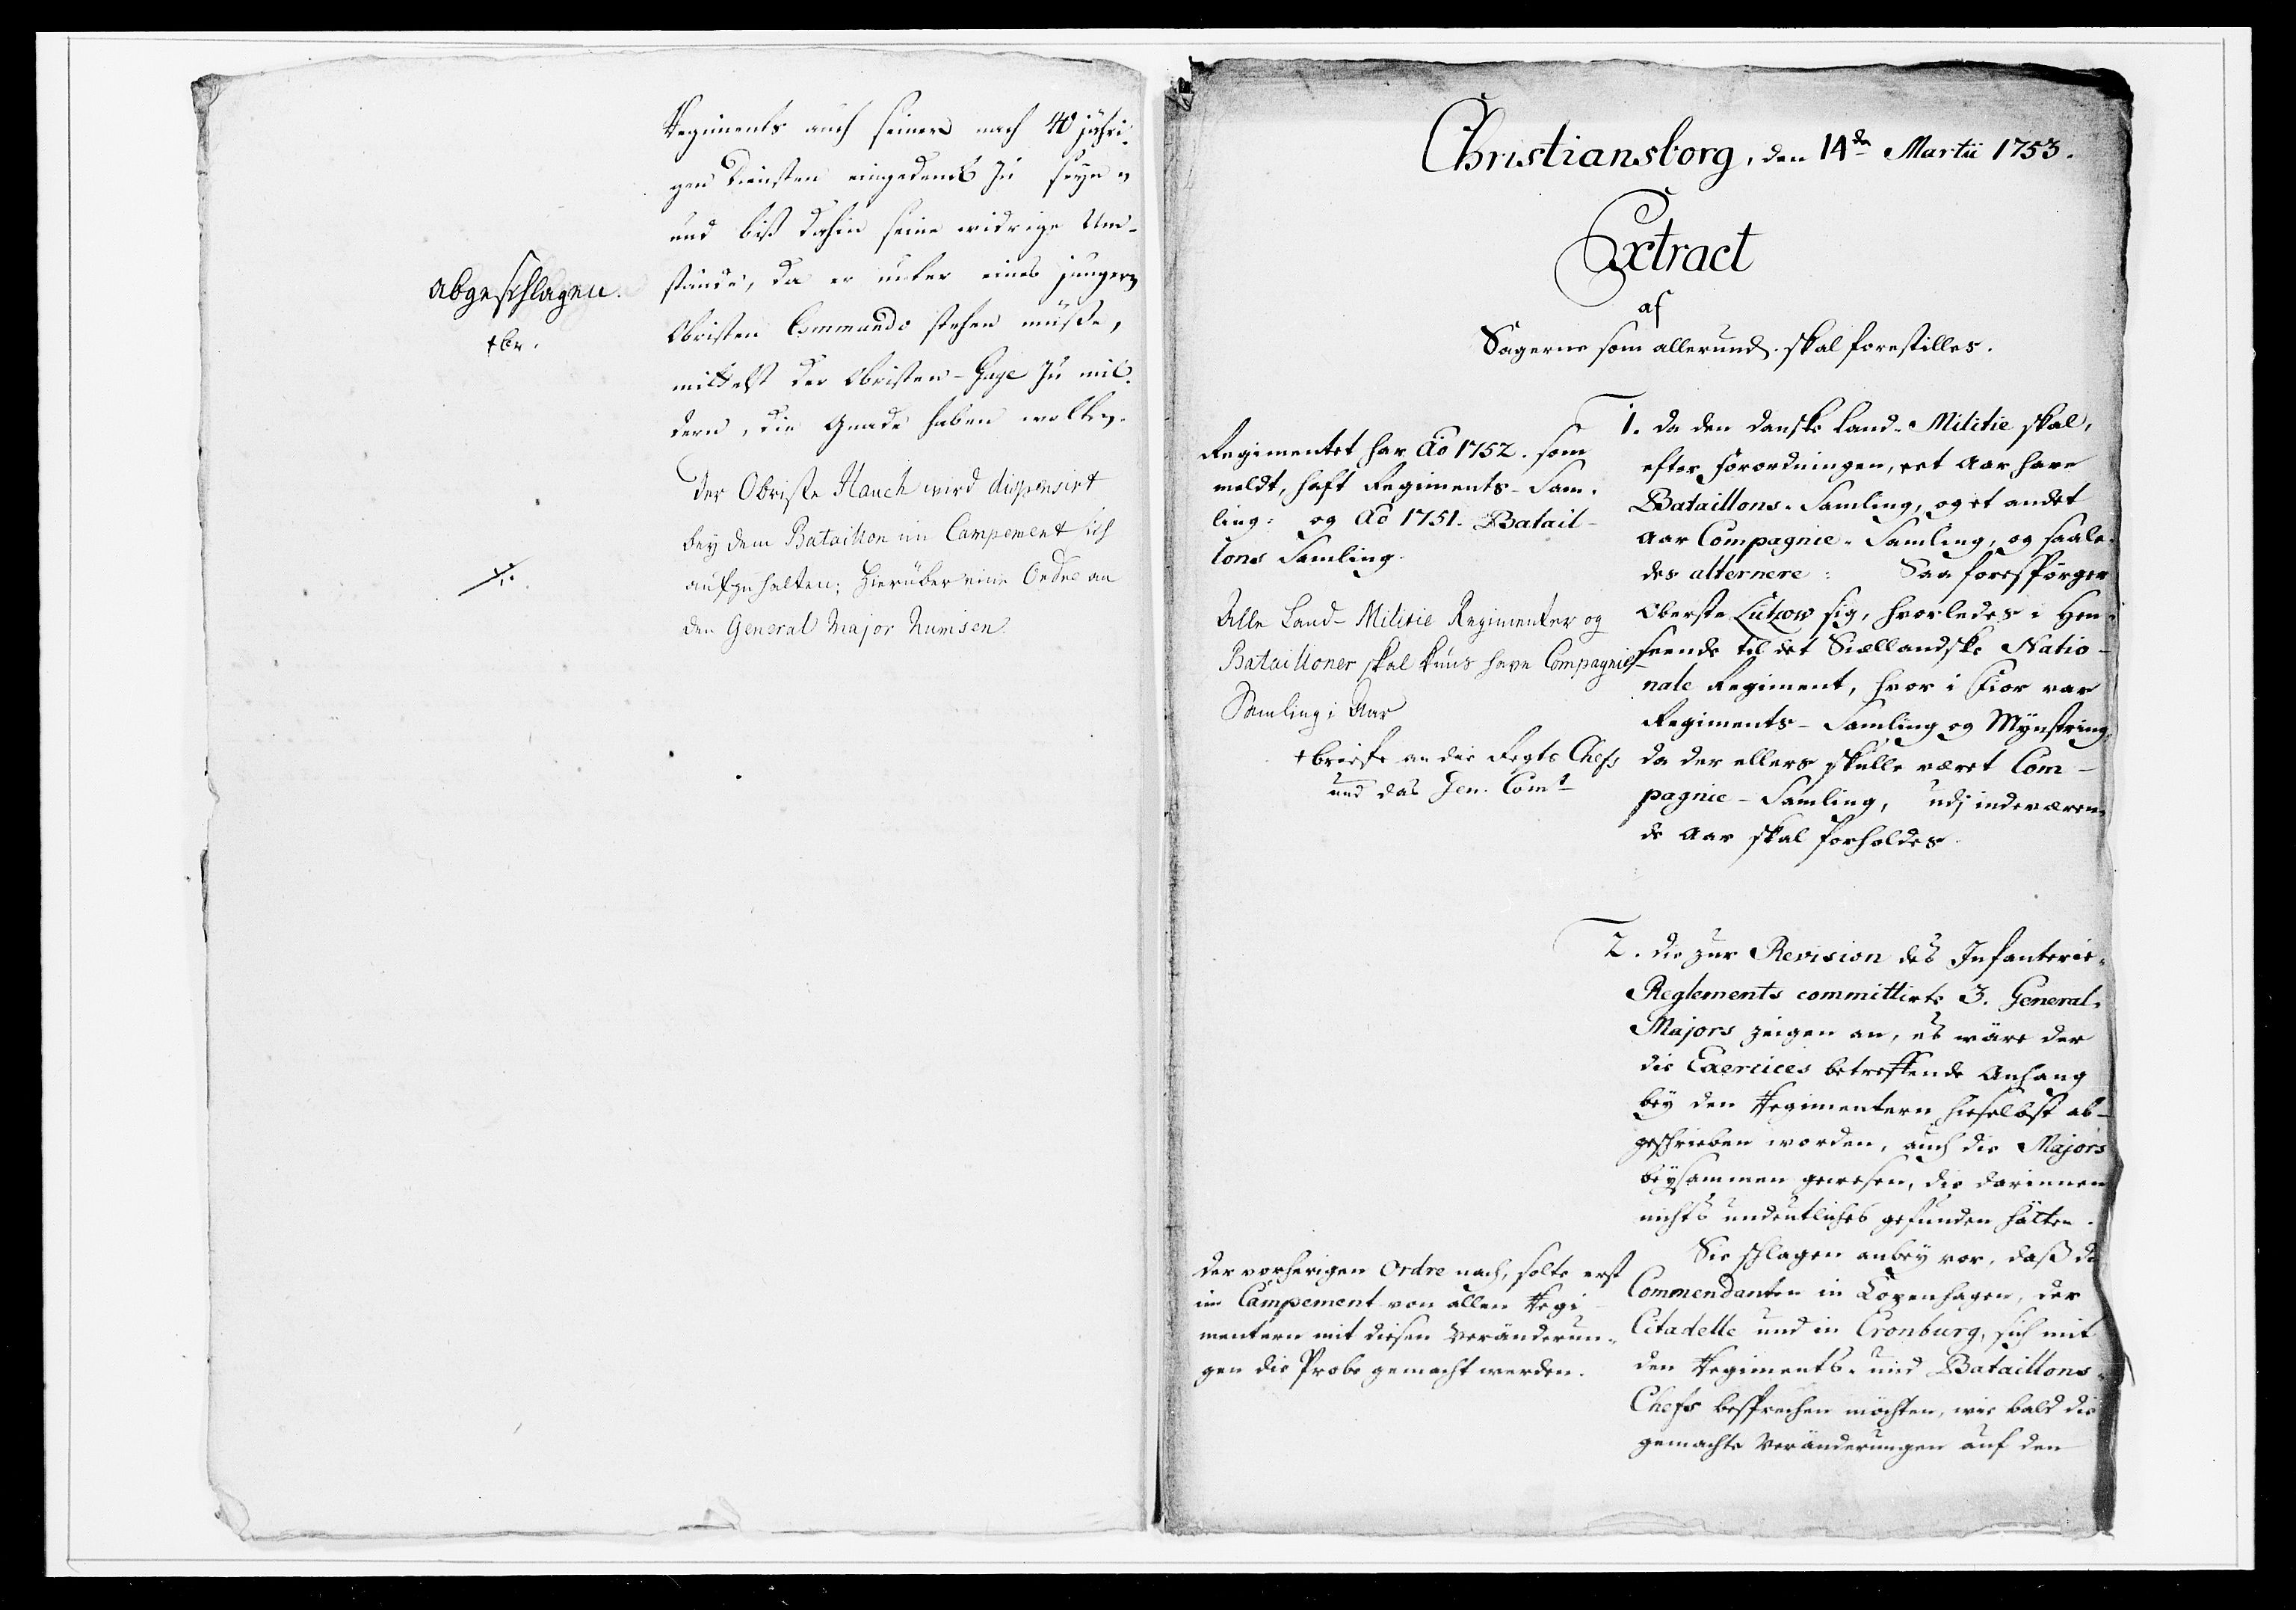 Regiments auch seiner nach 40 jähri-
gen Diensten eingedenck zu seyn,
und biß dahin seine widrige Um-
stände, da er unter eines jüngern
Obristen Commando stehen müße,
mittelst der Obristen-Gage zu mil-
dern, die Gnade haben wollen.
abgeschlagen.
+br.
Der Obriste Hauch wird dispensirt
bey dem Bataillon im Campement sich
aufzuhalten; hierüber eine Ordre an
den General Major Numsen.
Christiansborg, den 14de Martii 1753.
Extract
af
Sagerne som allerund. skal forestilles.
1. Da den danske Land-Militie skal,
efter Forordningen, eet Aar have
Bataillons-Samling, og et andet
Aar Compagnie-Samling, og saale-
des alternere: Saa forespörger
Oberste Lützow sig, hvorledes i Hen-
seende til det Siællandske Natio-
nale Regiment, hvor i Fior var
Regiments-Samling og Mynstring,
da der ellers skulle været Com-
pagnie-Samling, udj indeværen-
de Aar skal forholdes.
Regimentet har Ao 1752. som
meldt, haft Regiments-Sam-
ling: og Ao 1751. Batail-
lons Samling.
Alle Land-Militie Regimenter og
Batailloner skal kuns have Compagnie
Samling i Aar
+ briefe an die Regts Chefs
und das Gen. Comt
2. Die zur Revision des Infanterie-
Reglements committirte 3. General-
Majors zeigen an, es wäre der
die Exercices betreffende Anhang
bey den Regimentern hieselbst ab-
geschrieben worden, auch die Majors
beysammen gewesen, die darinnen
nichts undeutliches gefunden hätten.
Sie schlagen anbey vor, daß die
Commendanten in Copenhagen, der
Citadelle und in Cronburg, sich mit
den Regiments- und Bataillons-
Chefs besprechen möchten, wie bald die
gemachte Veränderungen auf den
Der vorherigen Ordre nach, solte erst
im Campement von allen Regi-
mentern mit diesen Veränderun-
gen die Probe gemacht werden.